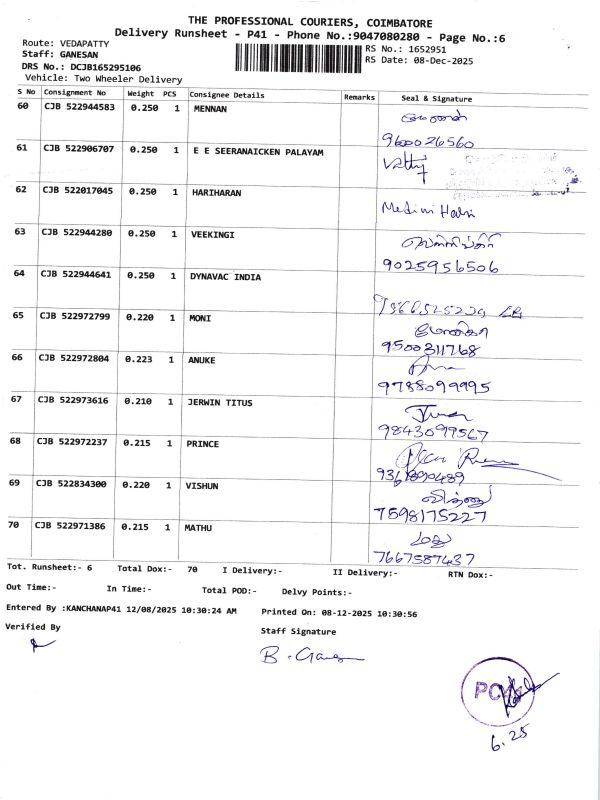 THE PROFESSIONAL COURIERS, COIMBATORE
Delivery Runsheet - P41 - Phone No.:9047080280 - Page No.:6
Route: VEDAPATTY
Staff: GANESAN
DRS No.: DCJB165295106
Vehicle: Two Wheeler Delivery
RS No.: 1652951
RS Date: 08-Dec-2025
S No Consignment No Weight PCS Consignee Details Remarks Seal & Signature
60 CJB 522944583 0.250 1 MENNAN
9600026560
61 CJB 522906707 0.250 1 E E SEERANAICKEN PALAYAM
62 CJB 522017045 0.250 1 HARIHARAN
63 CJB 522944280 0.250 1 VEEKINGI
9025956506
64 CJB 522944641 0.250 1 DYNAVAC INDIA
65 CJB 522972799 0.220 1 MONI
9500311768
66 CJB 522972804 0.223 1 ANUKE
9788099995
67 CJB 522973616 0.210 1 JERWIN TITUS
9843099567
68 CJB 522972237 0.215 1 PRINCE
69 CJB 522834300 0.220 1 VISHUN
7598175227
70 CJB 522971386 0.215 1 MATHU
மது
7667587437
Tot. Runsheet:- 6 Total Dox:- 70 I Delivery:- II Delivery:- RTN Dox:-
Out Time:- In Time:- Total POD:- Delvy Points:-
Entered By :KANCHANAP41 12/08/2025 10:30:24 AM Printed On: 08-12-2025 10:30:56
Verified By Staff Signature
6.25